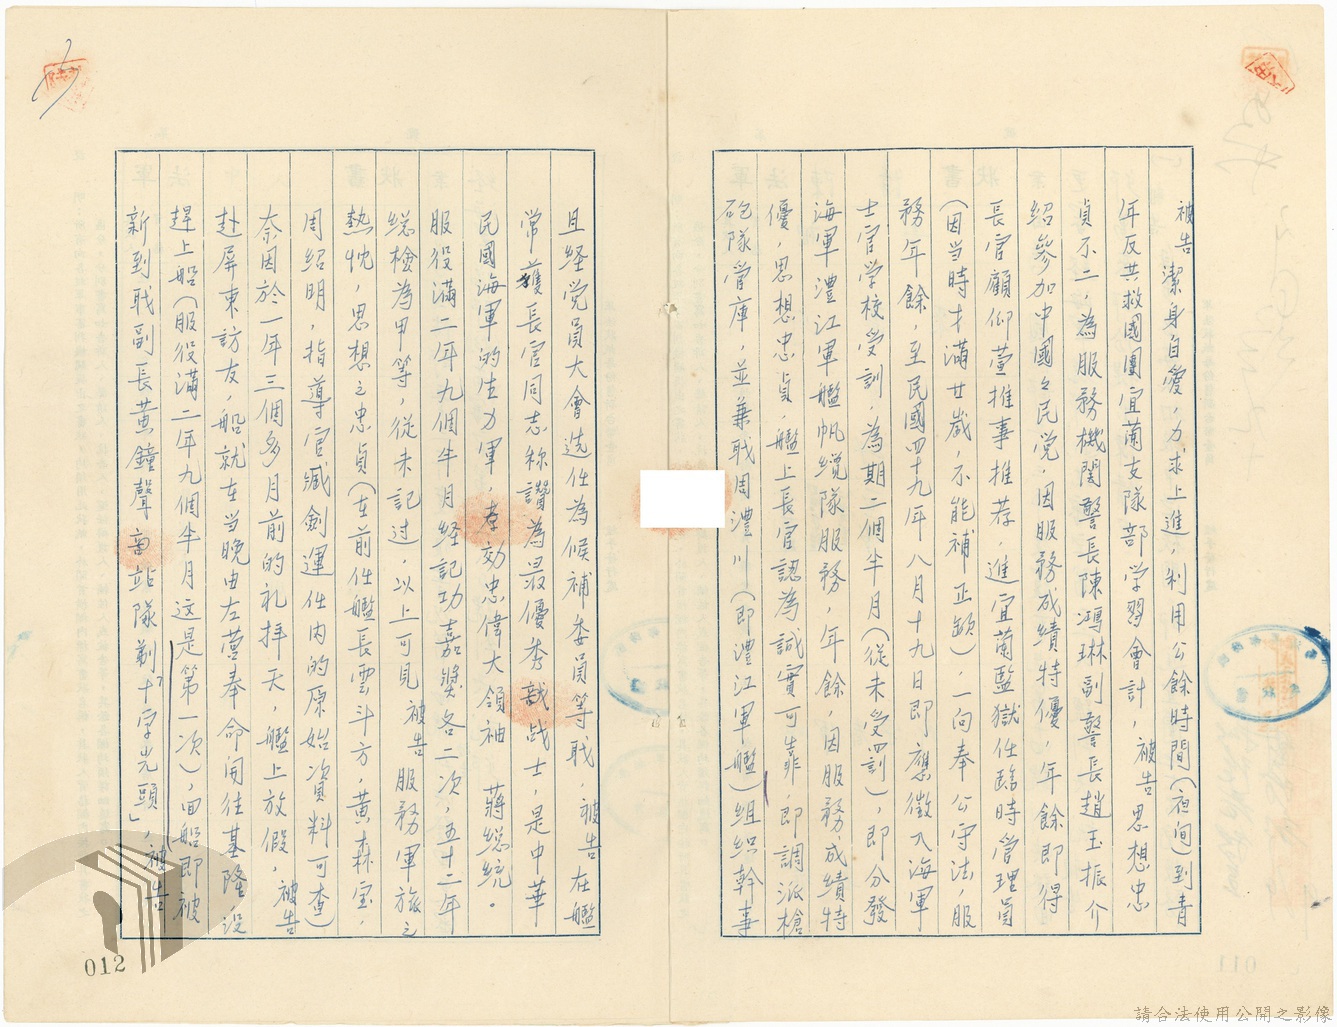 被告潔身自愛，力求上進，利用公餘時間（夜间）到青
年反共救國團宜蘭支隊部学習會計，被告思想忠
貞不二，為服務機関警長陳鴻琳副警長趙玉振介
紹參加中國々民党，因服務成績特優，年餘即得
長官顧仰薹推事推荐，進宜蘭監獄任臨時管理員
（因当時才滿廿歲，不能補正缺），一向奉公守法，服
務年餘，至民國四十九年八月十九日即應徵入海軍
士官学校受訓，為期二個半月（從未受罰），即分發
海軍澧江軍艦帆纜隊服務，年餘，因服務成績特
優，思想忠貞，艦上長官認為誠實可靠，即調派槍
砲隊管庫，並兼職周澧川（即澧江軍艦）組织幹事
且経党員大會选任為候補委員等职，被告在艦
常獲長官同志称讚為最優秀战士，是中華
民國海軍的生力軍，孝効忠偉大領袖　蔣総統。
服役滿二年九個半月経記功嘉獎各二次，五十二年
総檢為甲等，從未記过，以上可見被告服務軍旅之
熱忱，思想之忠貞（在前任艦長雲斗方，黃森宝，
周紹明，指導官臧劍運任内的原始資料可查）
奈因於一年三個多月前的礼拜天，艦上放假，被告
赴屏東訪友，船就在当晚由左營奉命開往基隆没
趕上船（服役滿二年九個半月这是第一次），回船即被
新到职副長黃鐘聲商站隊剃「十字光頭」，被告
012
011
請合法使用公開之影像